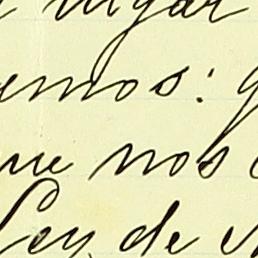 lugar
emos: q
ue nos
Ley de